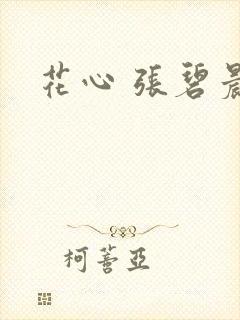 花心 張碧晨
柯蓍亞